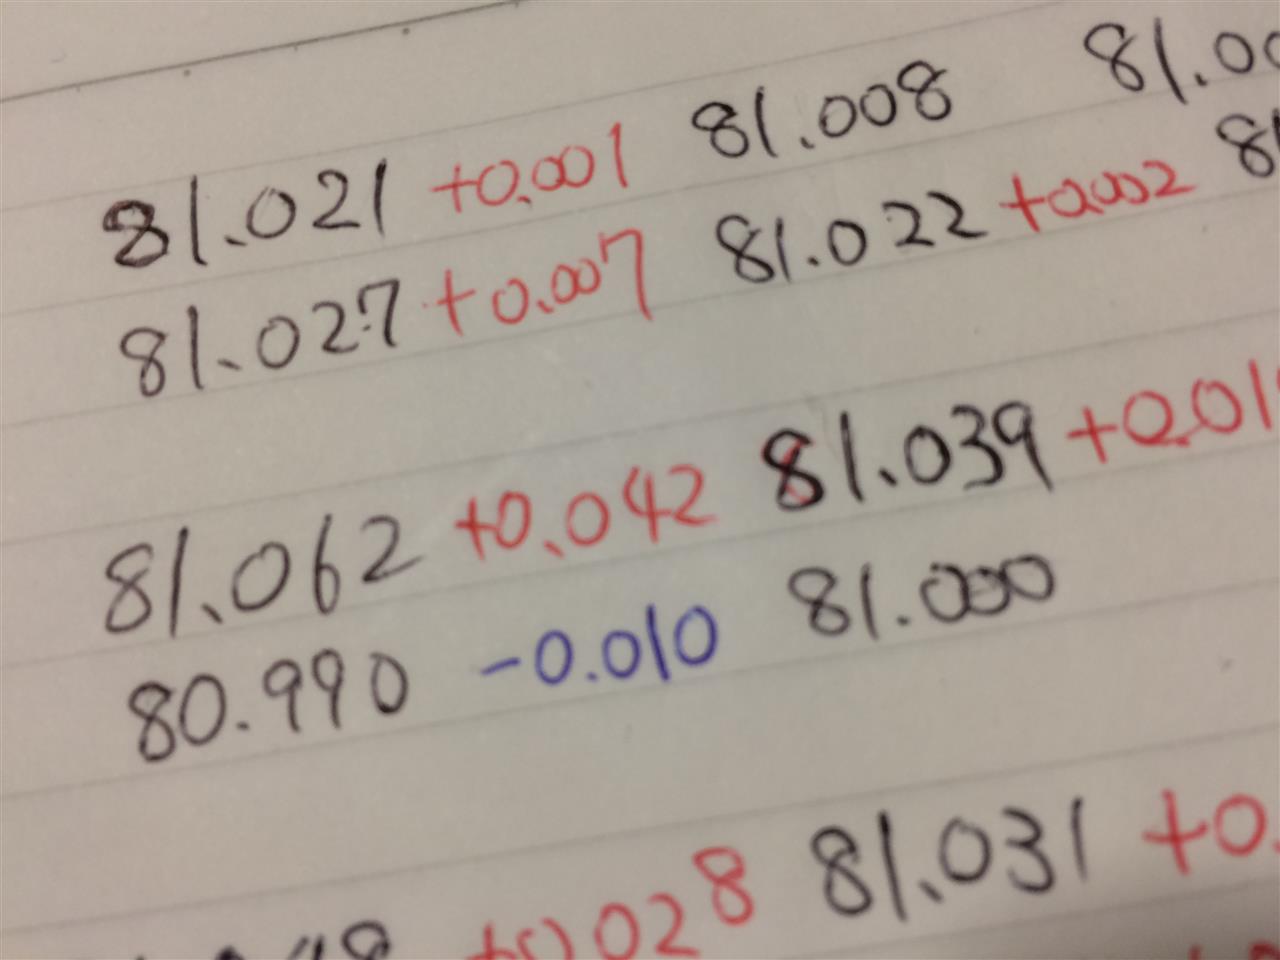 81.021 +0.001 81.008 81.00
81.027 +0.007 81.022 +0.002 8
81.062 +0.042 81.039 +0.01
80.990 -0.010 81.000
+0.028 81.031 +0.